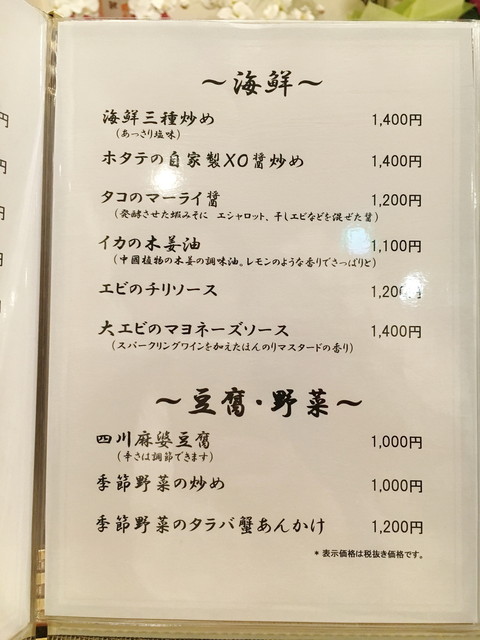 ～海鮮～
海鮮三種炒め 1,400円
（あっさり塩味）
ホタテの自家製XO醤炒め 1,400円
タコのマーライ醤 1,200円
（発酵させた蝦みそに エシャロット、干しエビなどを混ぜた醤）
イカの木姜油 1,100円
（中國植物の木姜の調味油。レモンのような香りでさっぱりと）
エビのチリソース 1,200円
大エビのマヨネーズソース 1,400円
（スパークリングワインを加えたほんのりマスタードの香り）
～豆腐・野菜～
四川麻婆豆腐 1,000円
（辛さは調節できます）
季節野菜の炒め 1,000円
季節野菜のタラバ蟹あんかけ 1,200円
＊表示価格は税抜き価格です。